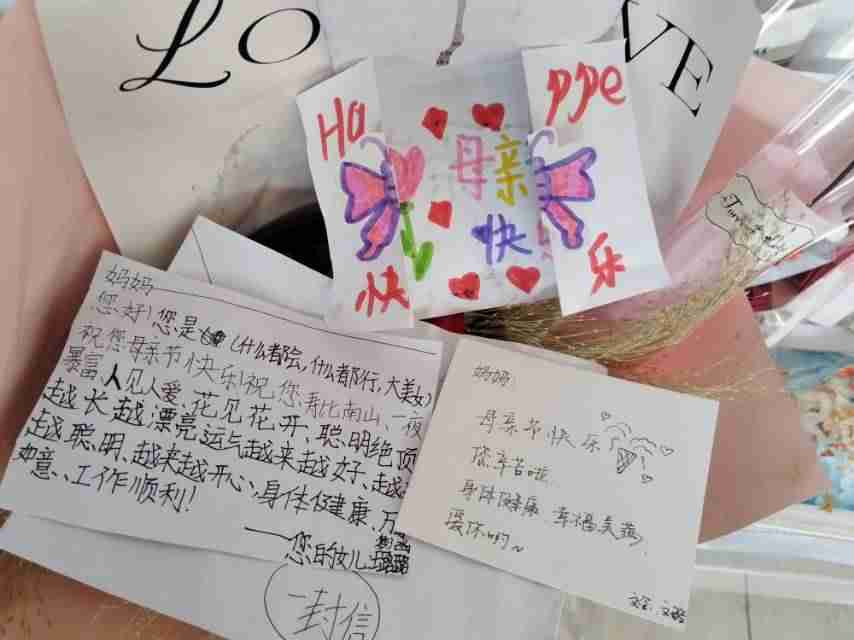 LOVE
Ha ppe
母亲
快
快 乐
妈妈
您好!您是(什么都会,什么都行,大美女)
祝您母亲节快乐!祝您,寿比南山、一夜
暴富、人见人爱、花见花开、聪明绝顶
越长越漂亮运气越来越好、越
越聪明、越来越开心、身体健康、万
如意、工作顺利!
——您的女儿
一封信
妈妈:
母亲节快乐
您辛苦啦
身体健康、幸福美满,
爱你的~